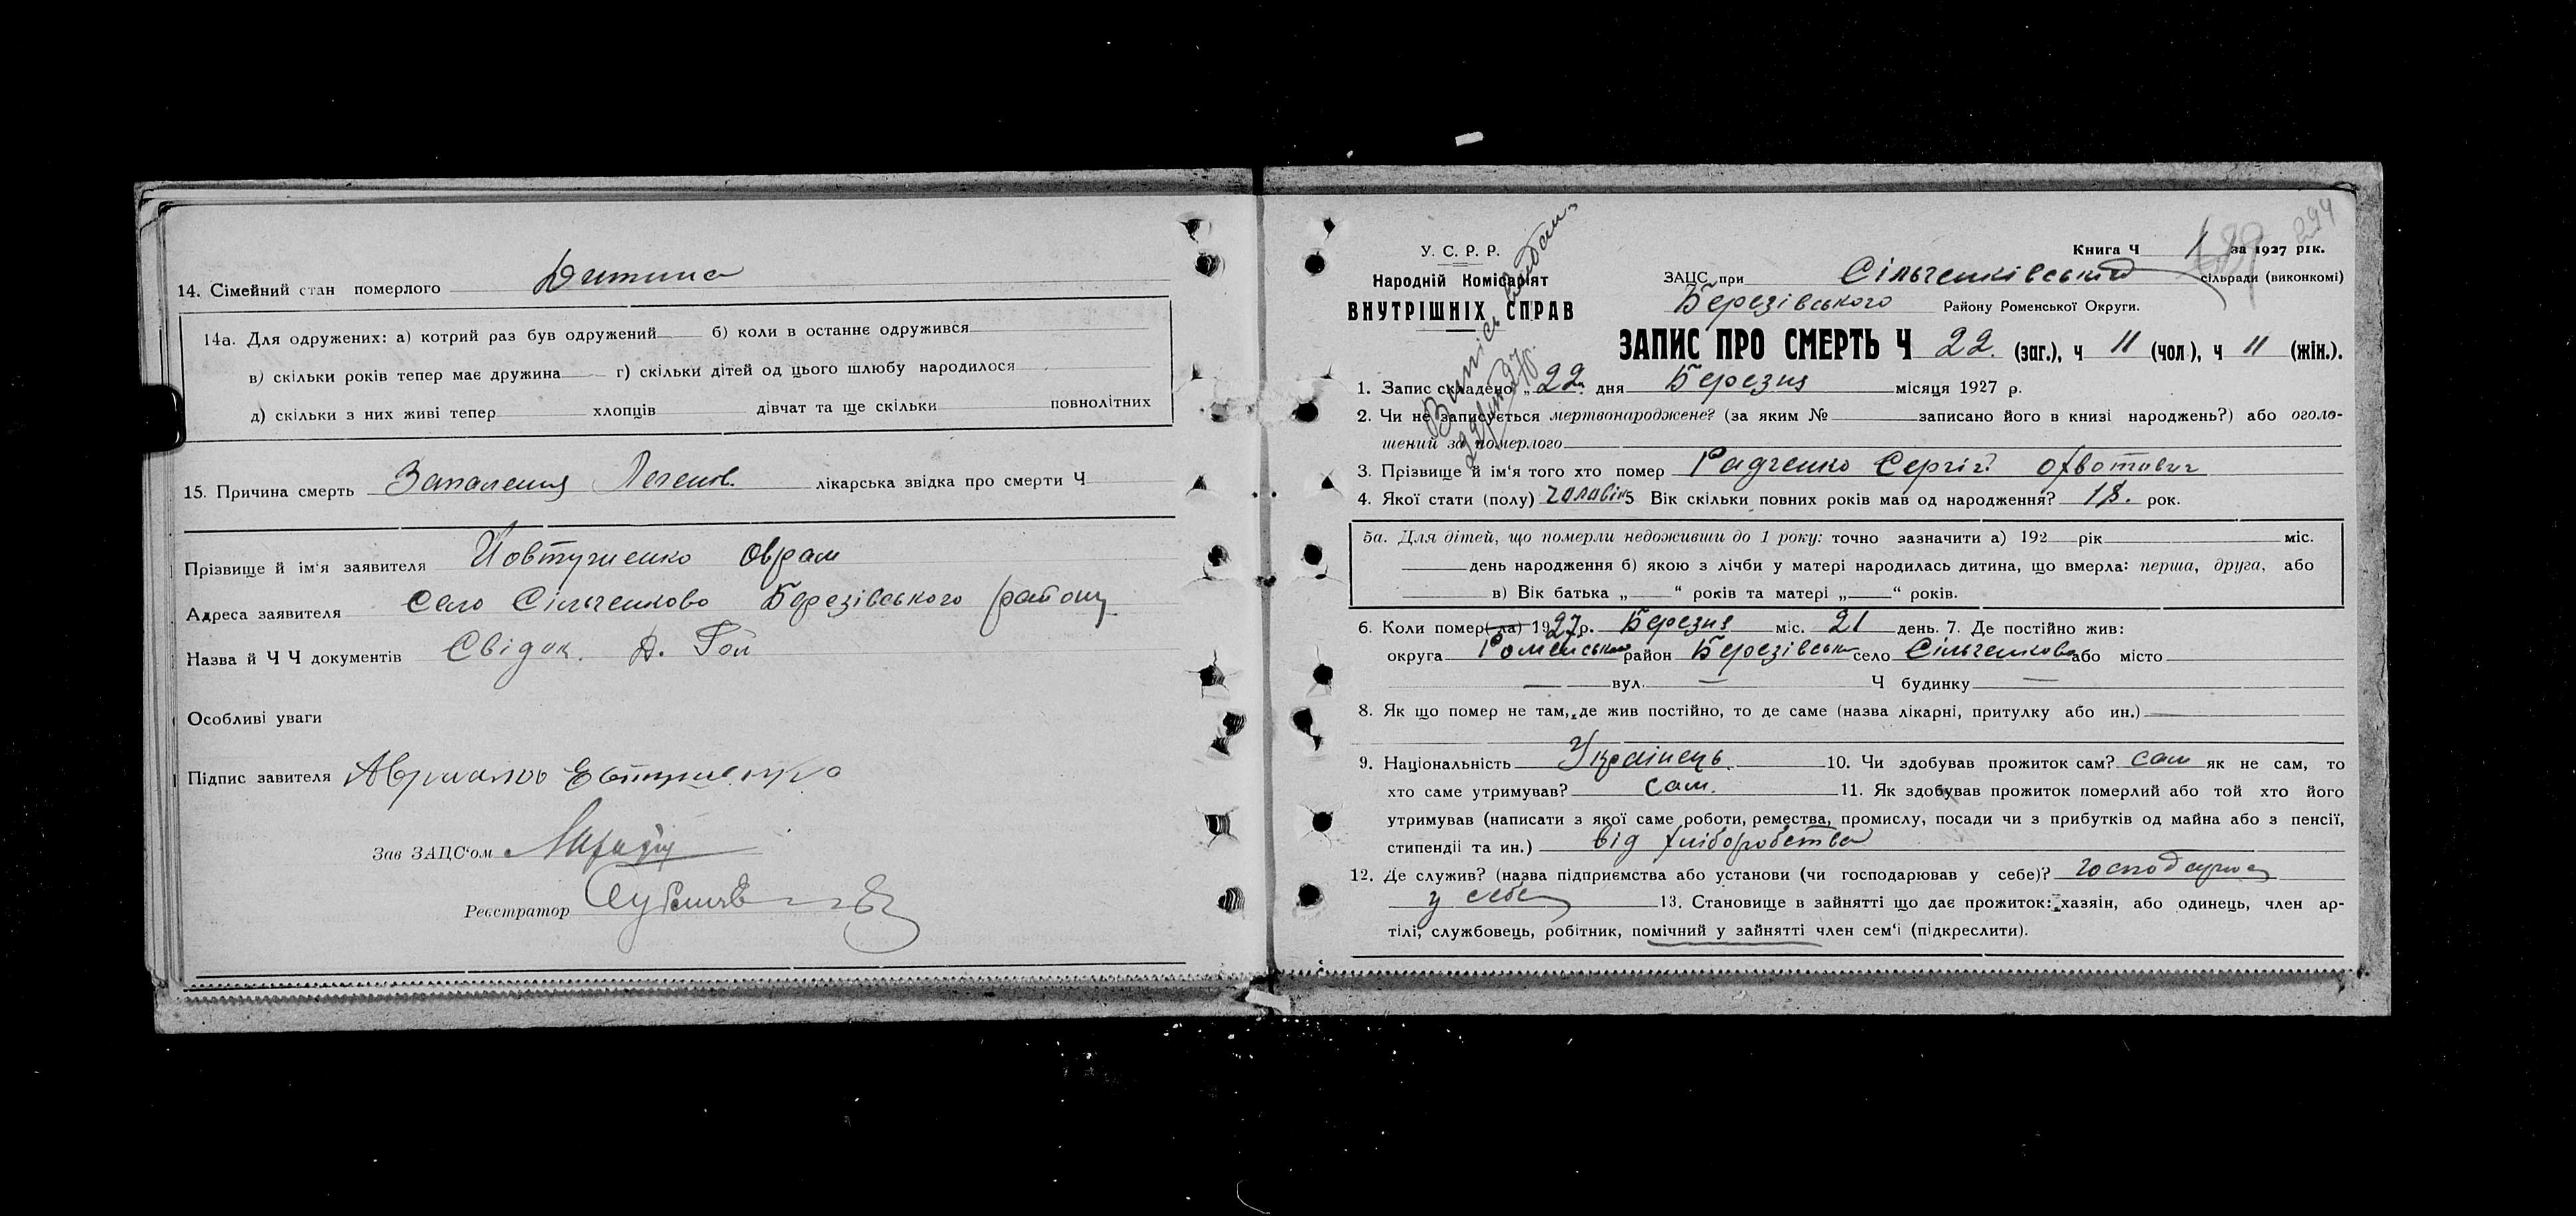 14. Сімейний стан померлого Дитина
14а. Для одружених: а) котрий раз був одружений б) коли в останнє одружився
в) скільки років тепер має дружина г) скільки дітей од цього шлюбу народилося
д) скільки з них живі тепер хлопців дівчат та ще скільки повнолітних
15. Причина смерть Запалення Легенів. лікарська звідка про смерти Ч
Прізвище й ім'я заявителя Йовтушенко Оврам
Адреса заявителя Село Сільченково Березівського району
Назва й Ч Ч документів Свідок. Д. Гой
Особливі уваги
Підпис завителя
Зав ЗАЦС'ом
Реєстратор
294
189
У. С. Р. Р.
Народній Комісаріят
ВНУТРІШНІХ СПРАВ
Випись видан.
Книга Ч 1 за 1927 рік.
ЗАЦС при Сільченківський сільради (виконкомі)
Березівського Району Роменської Округи.
ЗАПИС ПРО СМЕРТЬ Ч 22. (заг.), ч 11 (чол), ч 11 (жін.).
1. Запис складено „22" дня Березня місяця 1927 р.
2. Чи не записується мертвонароджене? (за яким № записано його в книзі народжень?) або оголо-
шений за померлого
3. Прізвище й ім'я того хто помер Радченко Сергій
4. Якої стати (полу) чоловік 5 Вік скільки повних років мав од народження? 18. рок.
5а. Для дітей, що померли недоживши до 1 року: точно зазначити а) 192 рік міс.
день народження б) якою з лічби у матері народилась дитина, що вмерла: перша, друга, або
в) Вік батька „ “ років та матері „ “ років.
6. Коли помер(-ла) 1927р. Березня міс. 21 день. 7. Де постійно жив:
округа Роменського район Березівськ село Сільченково або місто
вул. Ч будинку
8. Як що помер не там, де жив постійно, то де саме (назва лікарні, притулку або ин.)
9. Національність Українець. 10. Чи здобував прожиток сам? сам як не сам, то
хто саме утримував? сам. 11. Як здобував прожиток померлий або той хто його
утримував (написати з якої саме роботи, ремества, промислу, посади чи з прибутків од майна або з пенсії,
стипендії та ин.) від хліборобства
12. Де служив? (назва підприємства або установи (чи господарював у себе)? господарює
у себе 13. Становище в зайнятті що дає прожиток: хазяін, або одинець, член ар-
тілі, службовець, робітник, помічний у зайнятті член сем'і (підкреслити).